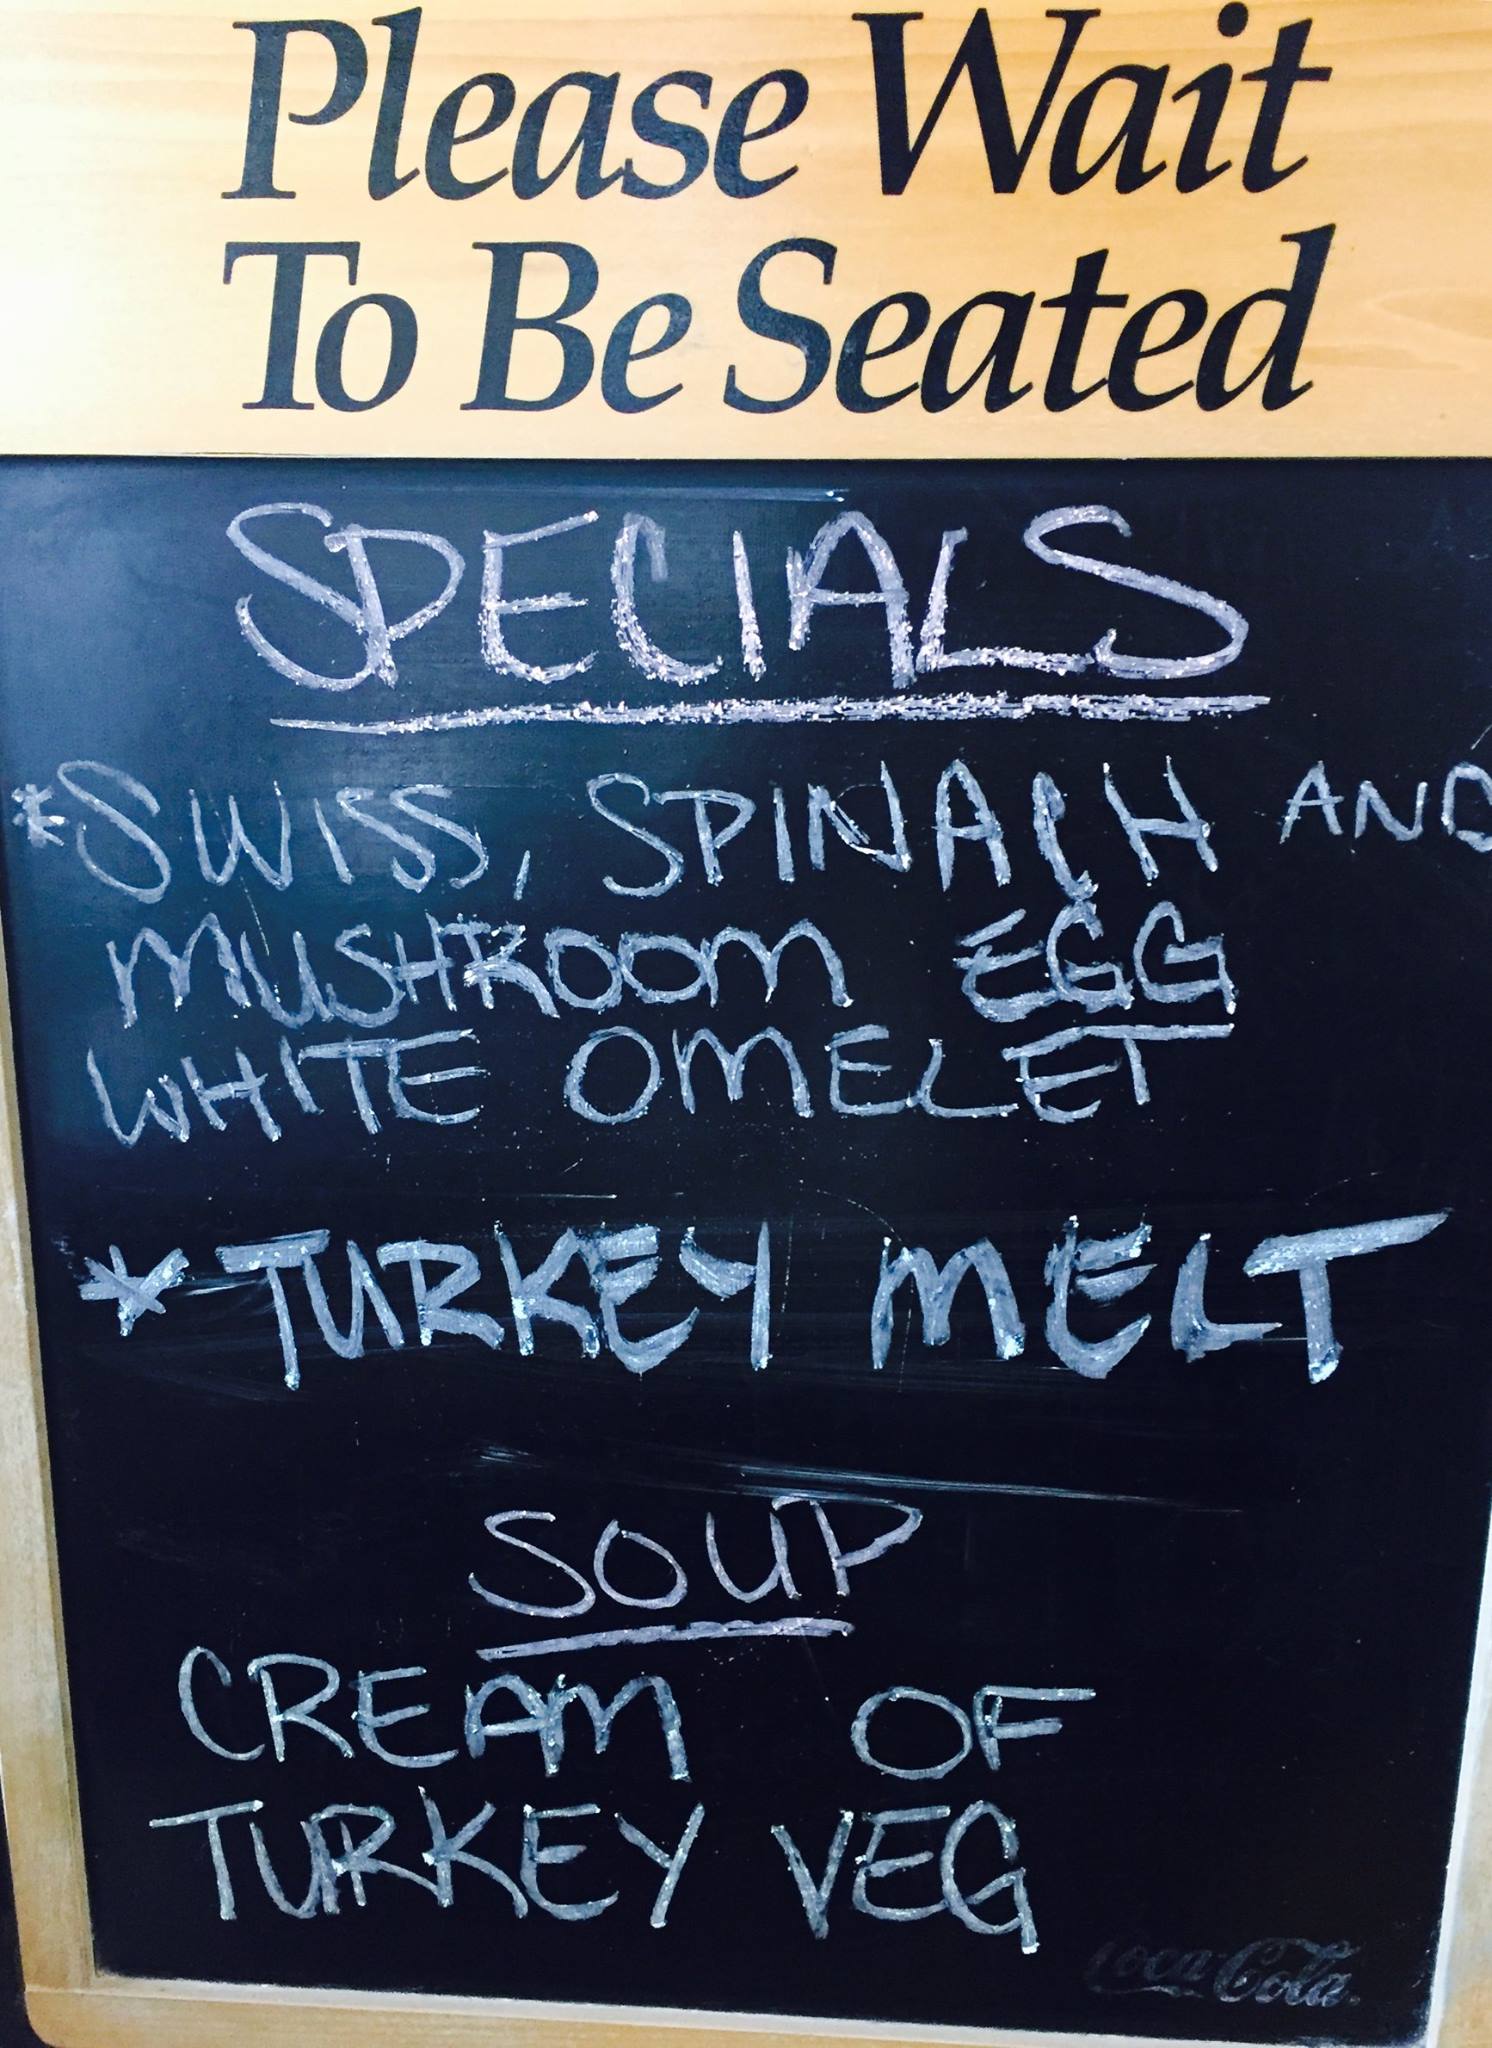 Please Wait
To Be Seated
SPECIALS
*SWISS, SPINACH AND
MUSHROOM EGG
WHITE OMELET
*TURKEY MELT
SOUP
CREAM OF
TURKEY VEG
Coca-Cola